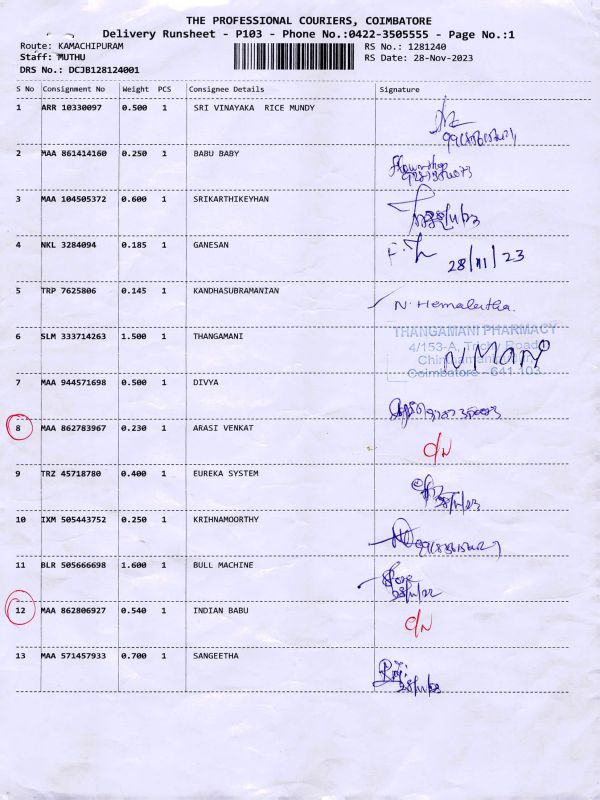 THE PROFESSIONAL COURIERS, COIMBATORE
Delivery Runsheet - P103 - Phone No.:0422-3505555 - Page No.:1
Route: KAMACHIPURAM
RS No.: 1281240
Staff: MUTHU
RS Date: 28-Nov-2023
DRS No.: DCJB128124001
S No Consignment No Weight PCS Consignee Details Signature
1 ARR 10330097 0.500 1 SRI VINAYAKA RICE MUNDY
2 MAA 861414160 0.250 1 BABU BABY
3 MAA 104505372 0.600 1 SRIKARTHIKEYHAN
4 NKL 3284094 0.185 1 GANESAN
28/11/23
5 TRP 7625806 0.145 1 KANDHASUBRAMANIAN
N. Hemalertha.
6 SLM 333714263 1.500 1 THANGAMANI
THANGAMANI PHARMACY
4/153-A, Trichy Road
N MANI
Coimbatore - 641 103
7 MAA 944571698 0.500 1 DIVYA
8 MAA 862783967 0.230 1 ARASI VENKAT
C/N
9 TRZ 45718780 0.400 1 EUREKA SYSTEM
10 IXM 505443752 0.250 1 KRIHNAMOORTHY
11 BLR 505666698 1.600 1 BULL MACHINE
12 MAA 862806927 0.540 1 INDIAN BABU
C/N
13 MAA 571457933 0.700 1 SANGEETHA